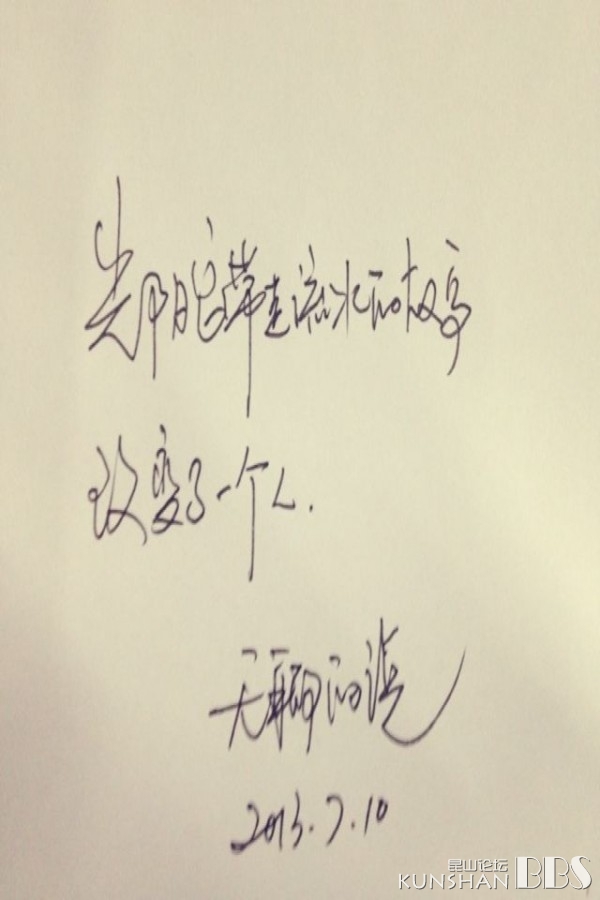 光阴它带走流水的故事
改变了一个人.
无聊的说
2013.7.10
昆山论坛
KUNSHAN BBS